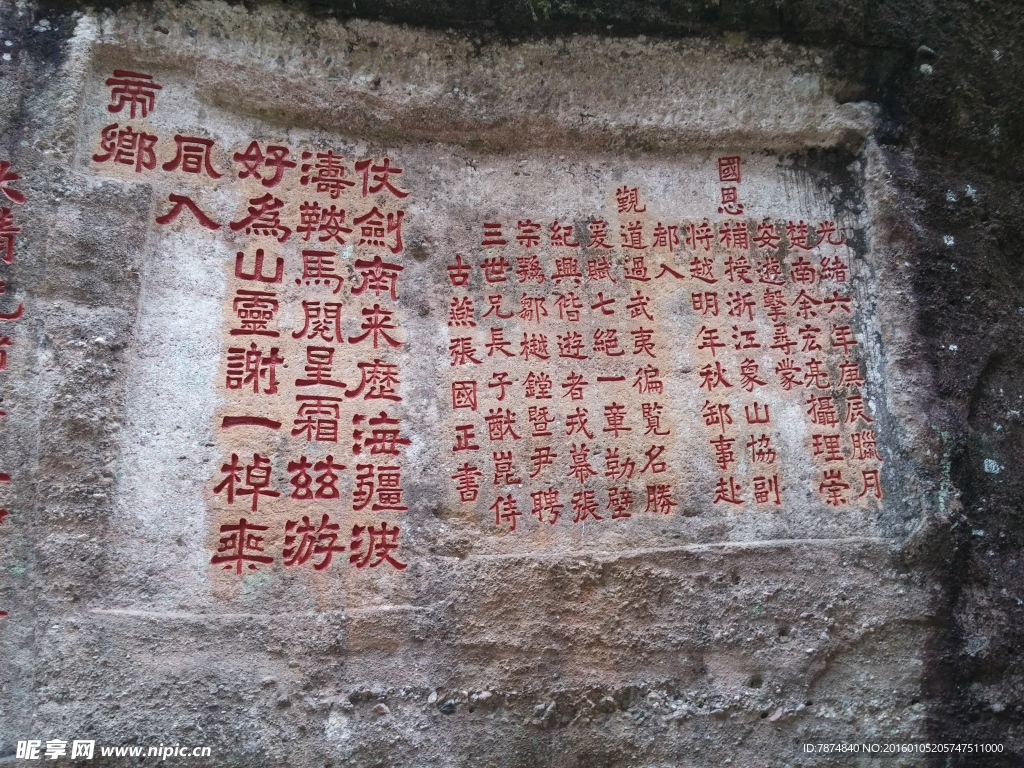 光緒六年庚辰臘月
楚南余宏亮攝理崇
安遊擊尋蒙
國恩
補授浙江象山協副
將越明年秋卸事赴
都入
觐
道過武夷徧覧名勝
爰賦七絕一章勒壁
紀興偕遊者戎幕張
宗鴉鄒樾鏜暨尹聘
三世兄長子猷崑侍
古燕張國正書
仗劍南来歷海疆波
濤鞍馬閱星霜兹游
好為山靈謝一棹乘
風入
帝鄉
昵享网 www.nipic.cn
ID:7874840 NO:20160105205747511000